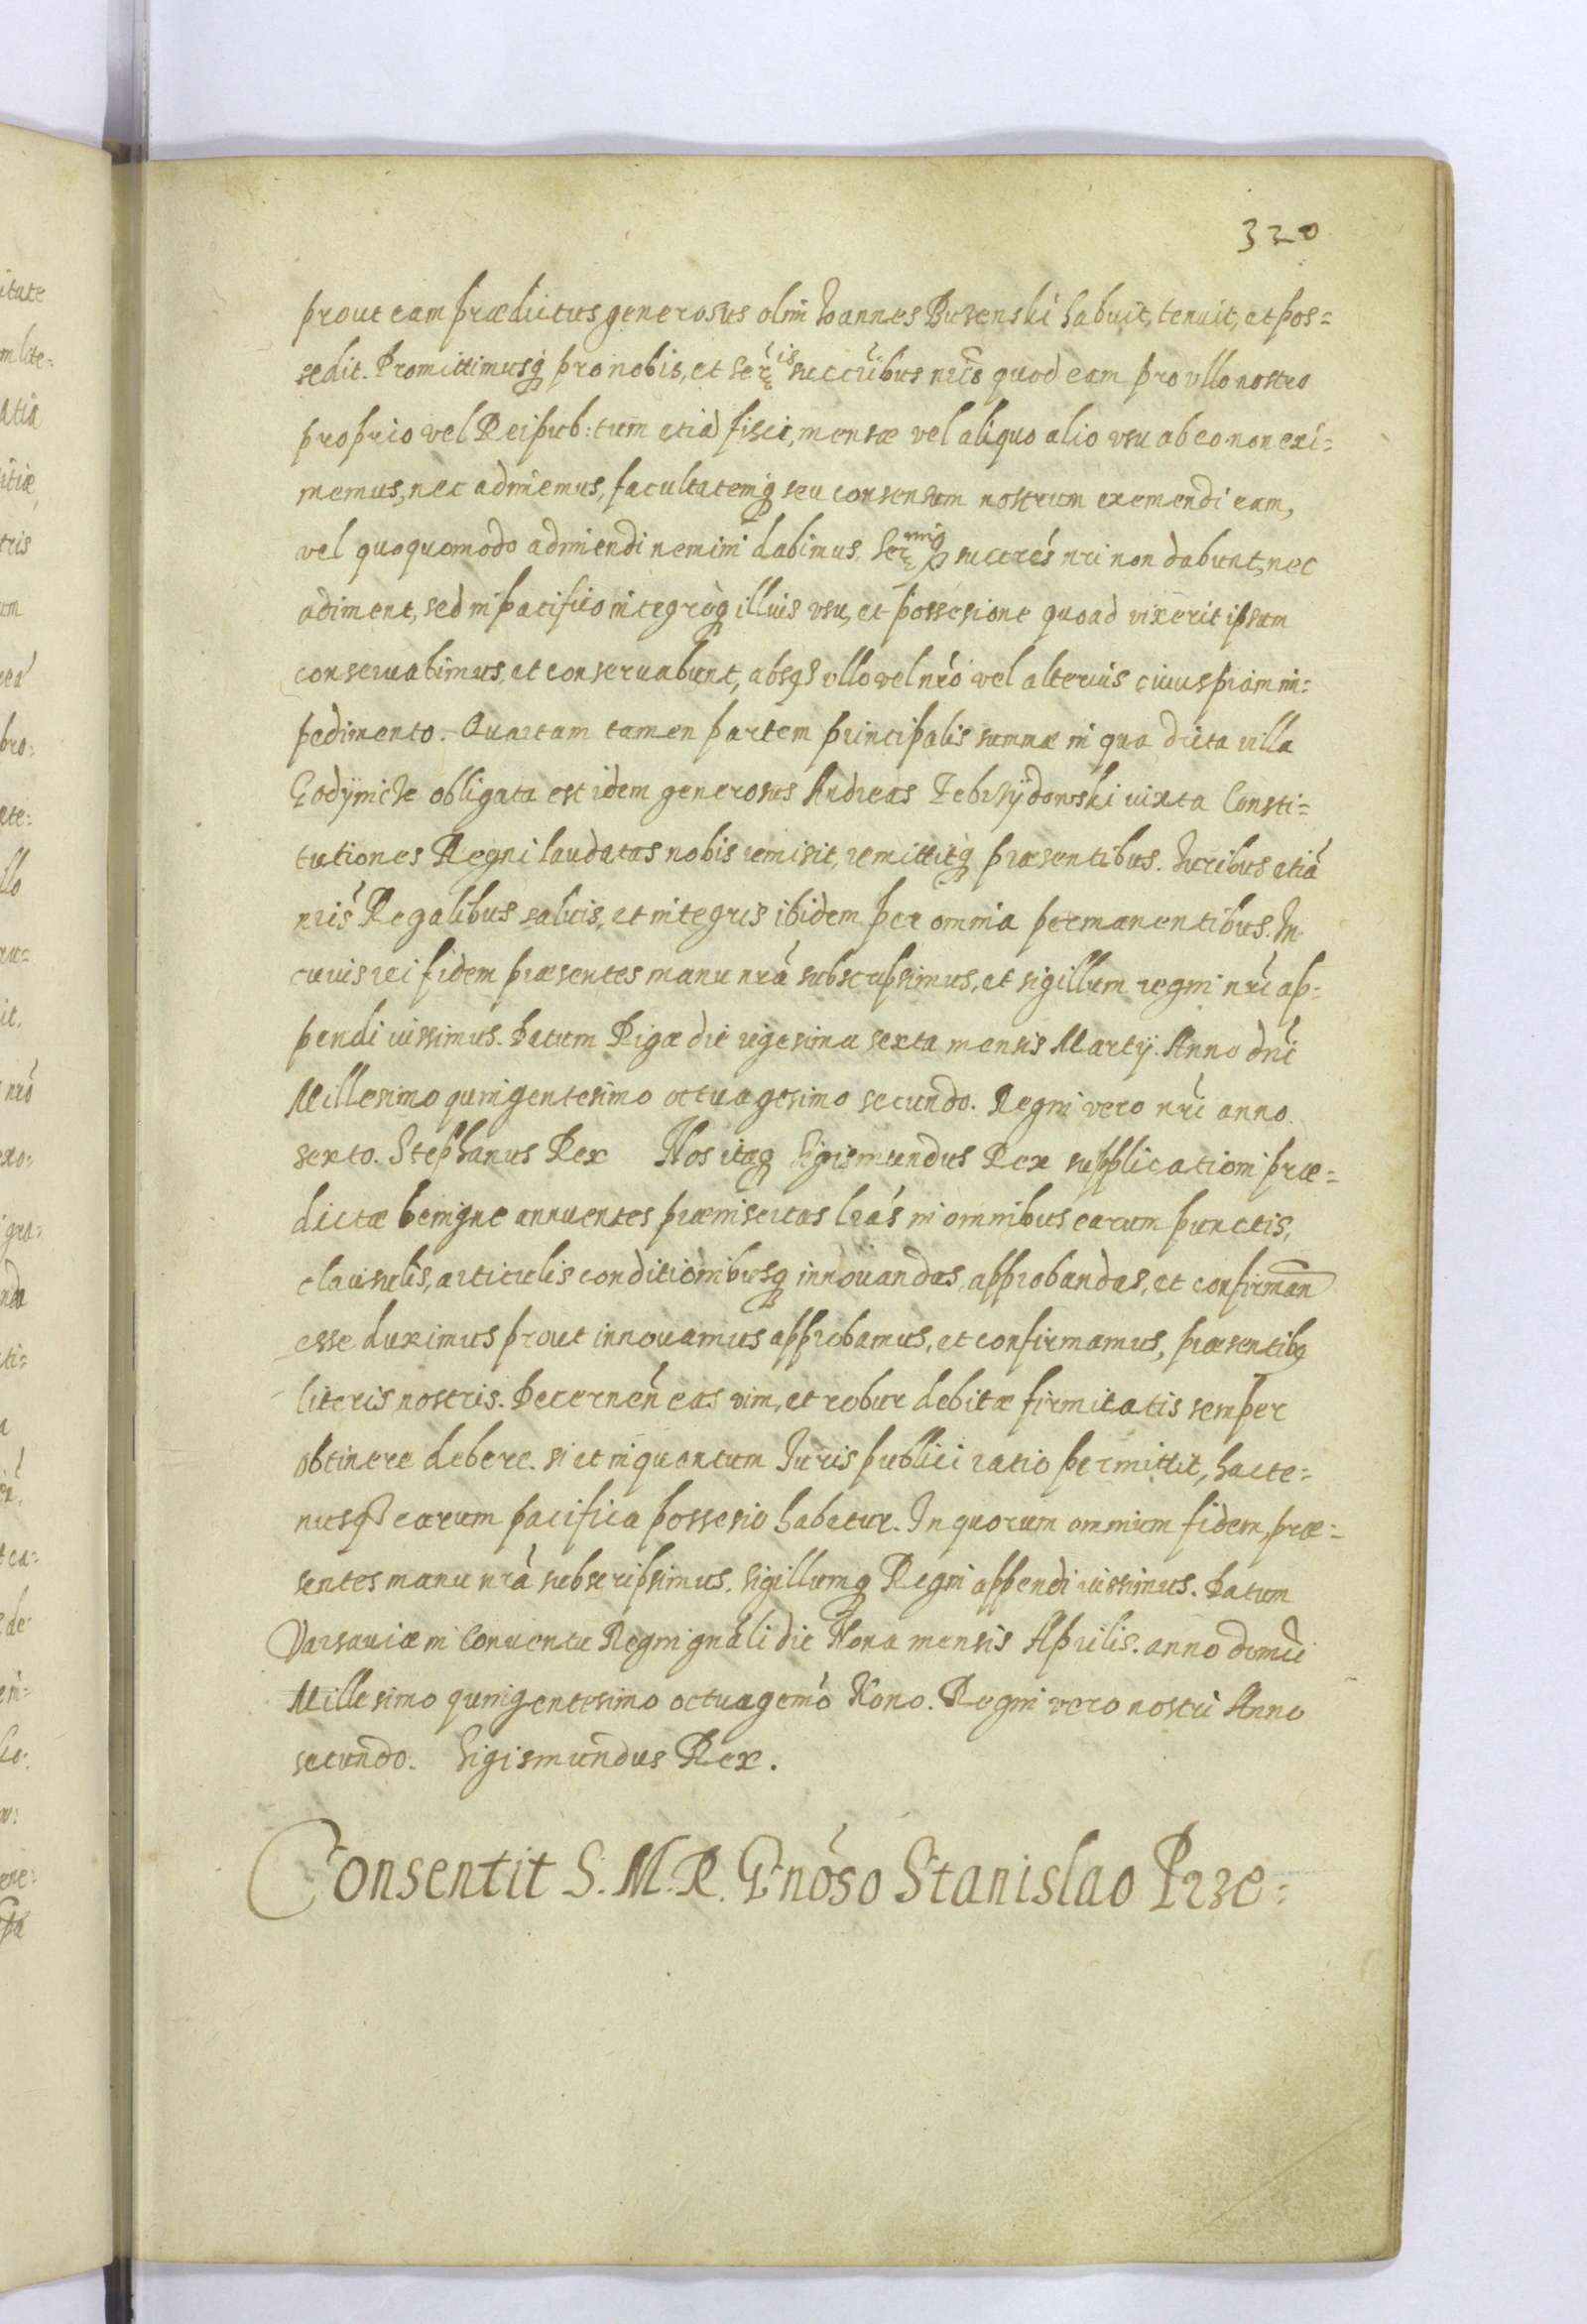 320
prout eam prædictus generosus olim Ioannes Buzenski habuit, tenuit, et pos=
sedit. Promittimusq́ pro nobis, et Ser is succribus nris quod eam pro vllo nostro
proprio vel Reipub: tum etiã fisci, mensæ vel aliquo alio vsu ab eo non exi=
memus, nec adimemus, facultatemq́ seu consensum nostrum exemendi eam,
vel quoquomodo adimendi nemini dabimus. Ser mig succrés nri non dabunt, nec
adiment, sed in pacifico integroq́ illius vsu, et possesione quoad vixerit ipsum
conseruabimus, et conseruabunt, absq vllo vel nro vel alterius cuiuspiam im=
pedimento. Quartam tamen partem principalis summæ in qua dicta villa
Godÿnicze obligata est idem generosus Andreas Zebrzÿdowski iuxta Consti=
tutiones Regni laudatas nobis remisit, remittitq́ præsentibus. Iuribus etiã
nris Regalibus saluis, et integris ibidem per omnia permanentibus. In
cuius rei fidem præsentes manu nrã subscripsimus, et sigillum regni nri ap=
pendi iussimus. Datum Rigæ die vigesima sexta mensis Martij. Anno dni
Millesimo quingentesimo octuagesimo secundo. Regni vero nri anno
sexto. Stephanus Rex Nos itaq́ Sigismundus Rex supplicationi præ=
dictæ benigne annuentes præinsertas lrás in omnibus earum punctis,
clausulis, articulis conditionibusq́ innouandas, approbandas, et confirman
esse duximus prout innouamus approbamus, et confirmamus, præsentibq
literis nostris. Decernen eas vim, et robur debitæ firmitatis semper
obtinere debere. si et inquantum Iuris publici ratio permittit, hacte=
nusq earum pacifica possesio habetur. In quorum omnium fidem, præ=
sentes manu nrã subscripsimus, sigillumq́ Regni appendi iussimus. Datum
Varsauiæ in Conuentu Regni gnali die Nona mensis Aprilis. anno domi
Millesimo quingentesimo octuagemo Nono. Regni vero nostri Anno
secundo. Sigismundus Rex.
Consentit S. M. R. Gnoso Stanislao Prze=